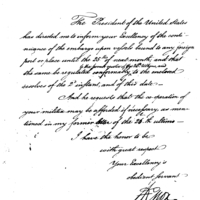 The President of the United States
has directed me to inform your Excellency of the conti-
nuance of the embargo upon vessels bound to any foreign
port or place until the 25th of next month and that
the same be regulated conformably to the enclosed
resolves of the 2d instant, and of this date
And he requests that the operation of
your militia may be afforded if necessary, as men-
tioned in my former letter of the ultimo
I have the honor to be
with great respect
Your Excellency's
obedient servant